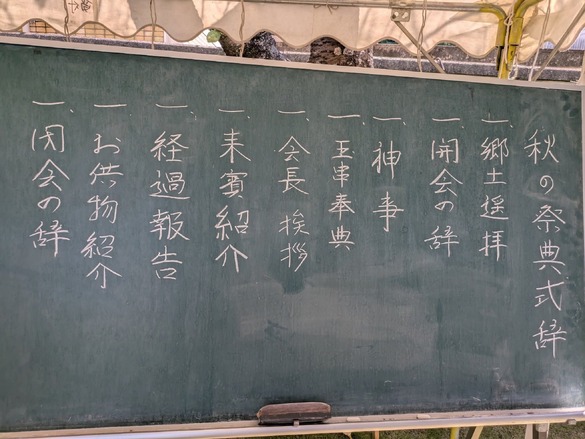 秋の祭典式辞
一、郷土遥拝
一、開会の辞
一、神事
一、玉串奉典
一、会長挨拶
一、来賓紹介
一、経過報告
一、お供物紹介
一、閉会の辞